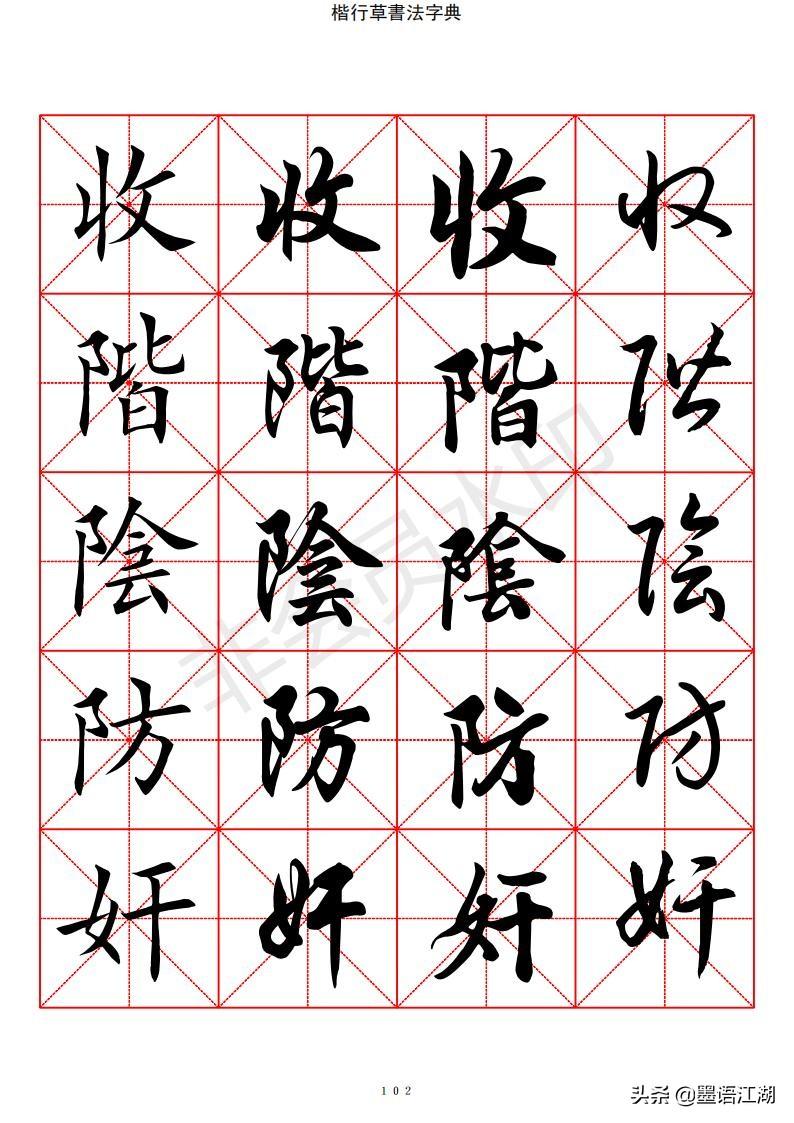 楷行草書法字典
收收收收
階階階階
陰陰陰陰
防防防防
奸奸奸奸
非会员水印
102
头条 @墨语江湖